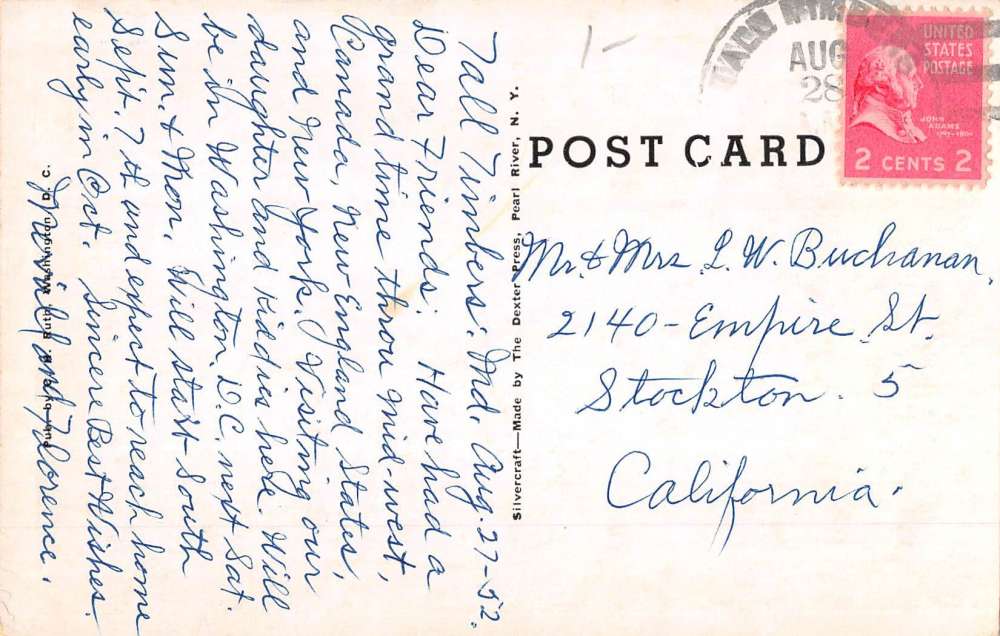 Tall Timbers. Md. Aug. 27-52.
Dear Friends: Have had a
grand time throu mid-west,
Canada, New England States,
and New York. Visiting our
daughter and kiddies here. Will
be in Washington. D.C. next Sat.
Sun. & Mon. Will start South
Sept. 7th and expect to reach home
early in Oct. Sincere Best Wishes.
and Florence.
Pub. by Ruth, Washington, D. C.
Silvercraft—Made by The Dexter Press, Pearl River, N. Y.
POST CARD
AUG
28
UNITED
STATES
POSTAGE
JOHN
ADAMS
2 CENTS 2
Mr. & Mrs L. W. Buchanan,
2140-Empire St.
Stockton. 5
California.